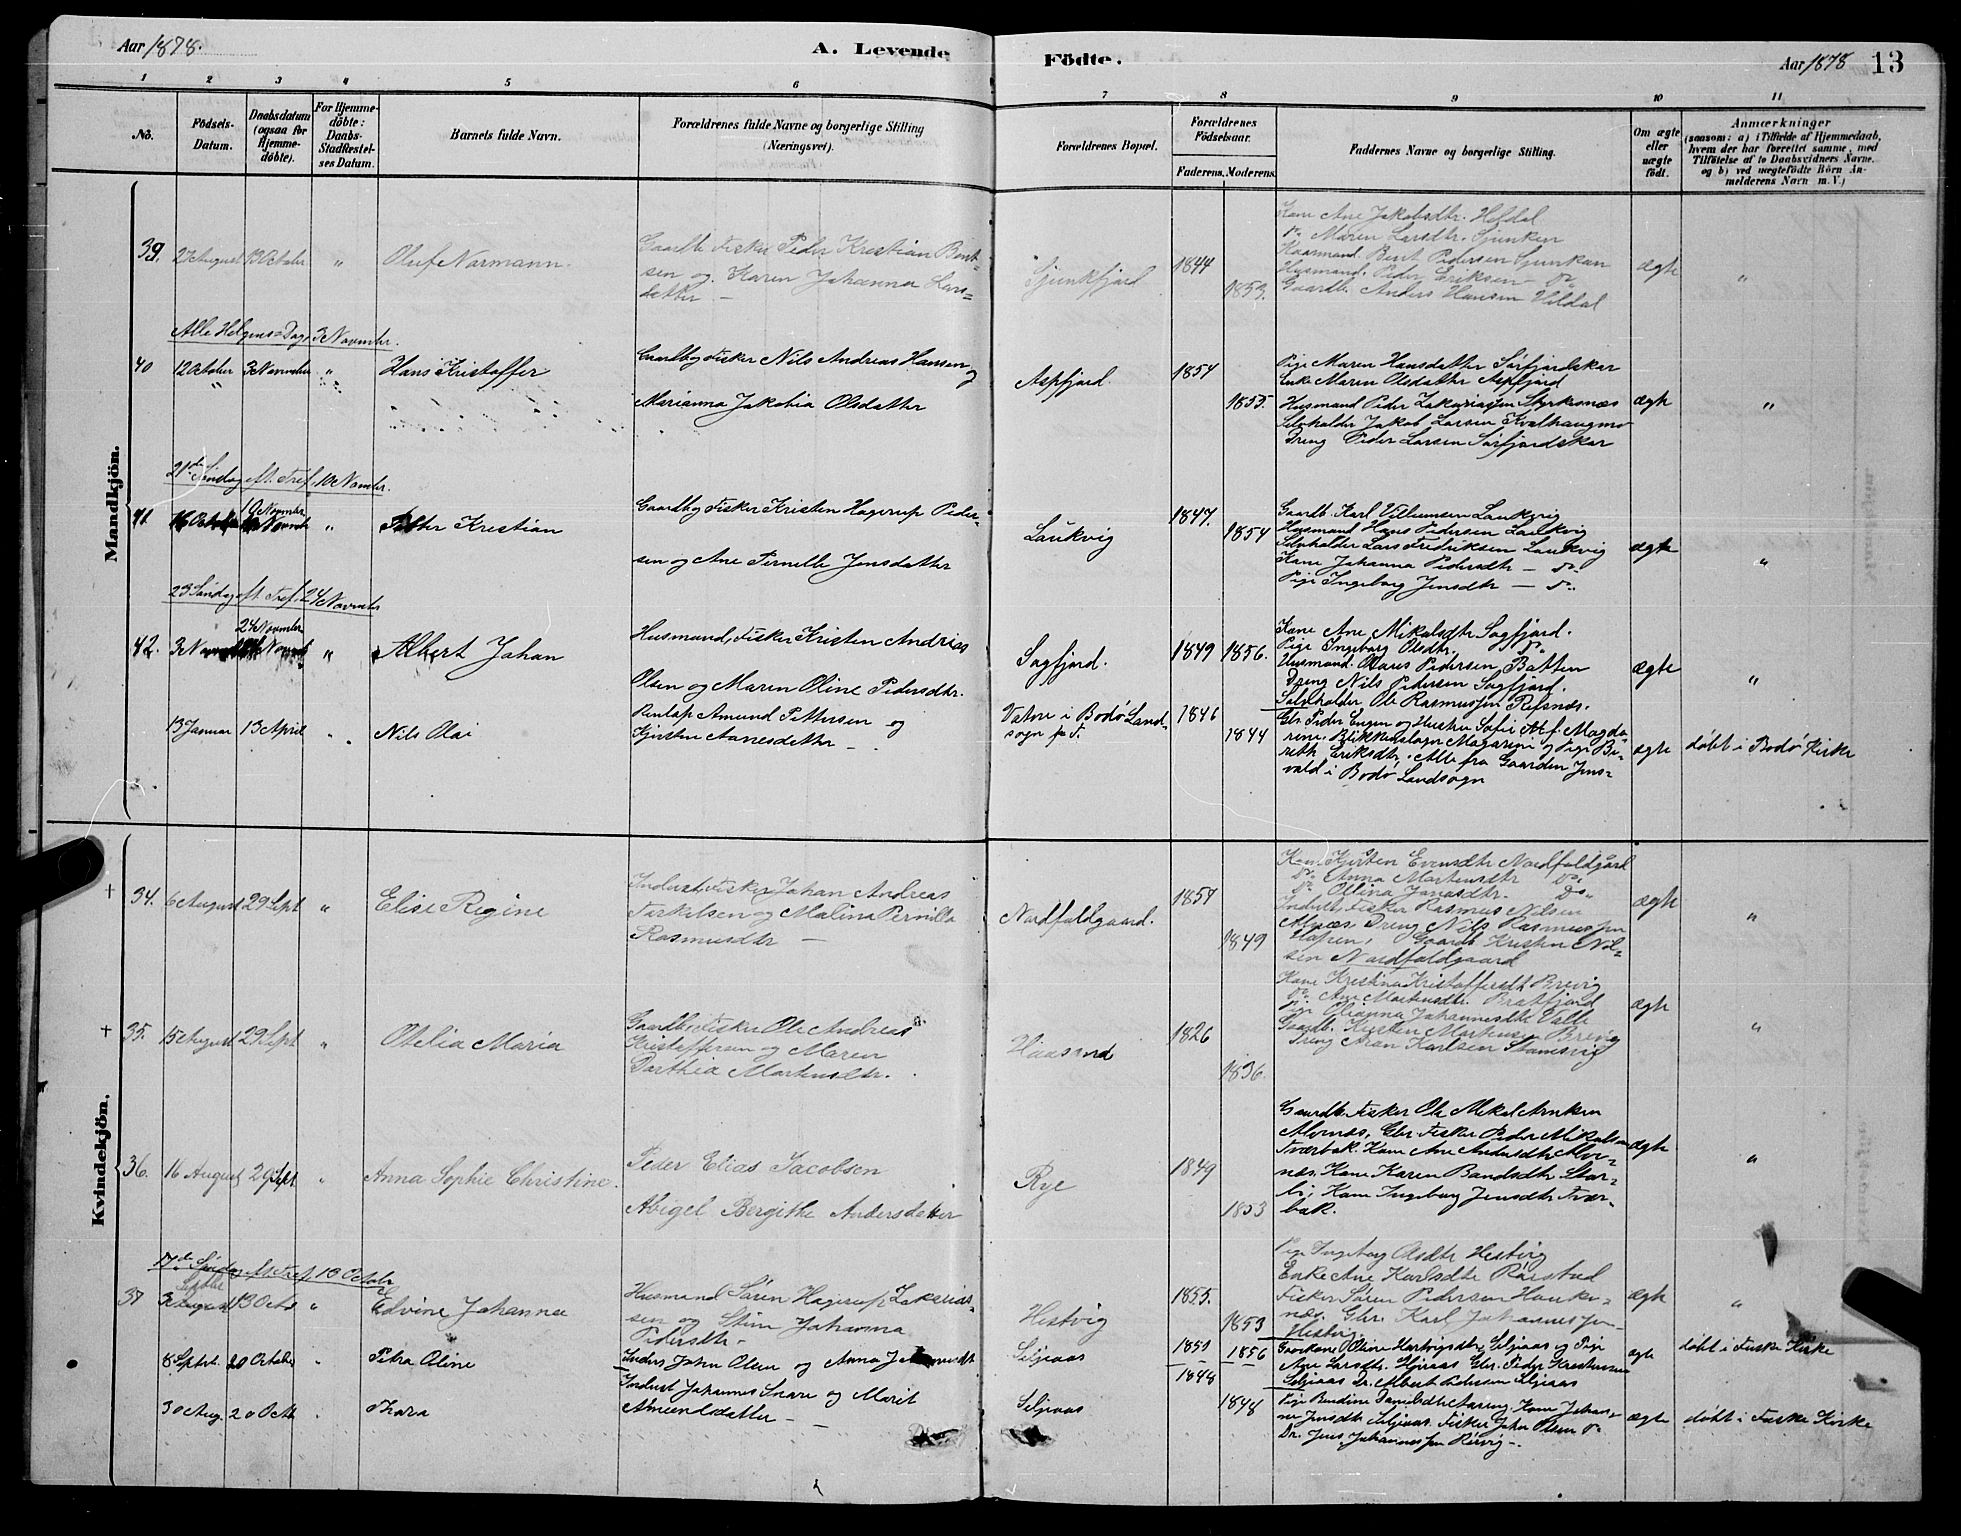 Aar 1878.
A. Levende
Födte.
Aar 1878
13
1 2 3 4 5 6 7 8 9 10 11
No.
Födsels-
Datum.
Daabsdatum
(ogsaa for
Hjemme-
döbte).
For Hjemme-
döbte:
Daabs-
Stadfæstel-
ses Datum.
Barnets fulde Navn.
Forældrenes fulde Navne og borgerlige Stilling
(Næringsvei).
Forældrenes Bopæl.
Forældrenes
Födselsaar.
Faderens. Moderens.
Faddernes Navne og borgerlige Stilling.
Om ægte
eller
uægte
födt.
Anmærkninger
(saasom: a) i Tilfælde af Hjemmedaab,
hvem der har forrettet samme, med
Tilföielse af to Daabsvidners Navne.
og b) ved uægtefödte Börn An-
melderens Navn m. V.)
Mandkjön.
39. 27 August 13 October " Oluf Normann.
Gaardb. Fisker Peder Kristian Bent-
sen og Karen Johanna Lars-
datter —
Sjunkfjord 1844 1853.
Kone Ane Jakobsdtr. Heldal
Do Maren Larsdtr. Sjunken
Husmand Peder Eriksen Do
Gaardb. Anders Hansen Heldal
ægte "
Alle Helgens-Dag, 3 Novembr.
40 12 October 3 November " Hans Kristoffer
Gaardb og Fisker Nils Andreas Hansen og
Marianna Jakobia Olsdatter
Aspfjord. 1854 1855.
Pige Maren Hansdatter Sörfjordskar
Enke Maren Olsdatter Aspfjord
Husmand Peder Zakariassen Styrkesnæs
Selvholder Jakob Larsen Kvalhaugmo
Dreng Peder Larsen Sörfjordskar
ægte "
21de Söndag eft. Tref. 10 Novmbr.
41. 10 Novmbr " Petter Kristian
Gaardb og Fisker Kristen Hagerup Peder-
sen og Ane Pernille Jensdatter
Laukvig 1847. 1854
Gaardb. Karl Villumsen Laukvig
Husmand Hans Pedersen Laukvig
Selvholder Lars Fredriksen Laukvig
Kone Johanna Pedersdtr — Do
Pige Ingeborg Jensdtr — Do
ægte "
23 Söndag eft. Tref. 24 Novmbr
42. 3 Novmbr 24 Novmbr " Albert Johan
Husmand, Fisker Kristen Andreas
Olsen og Maren Oline Pedersdtr.
Sagfjord. 1849 1856.
Kone Ane Mikalsdtr Sagfjord.
Pige Ingeborg Olsdtr. Do
Husmand Olaus Pedersen Batten
Dreng Nils Pedersen Sagfjord.
Selvholder Ole Rasmussen Refsnæs.
ægte "
13 Januar 13 April " Nils Olai
Amund Pettersen og
Kjersten Aanesdatter —
Vatne i Bodö Land-
sogn 1846 1844
Gbr. Peder Engen og Hustru Sofie
Alle fra Gaarden
i Bodö Landsogn
ægte döbt i Bodö Kirke
Kvindekjön.
† 34. 6 August 29 Sept " Elise Regine
Inderst, Fisker Johan Andreas
Torkelsen og Malina Pernille
Rasmusdtr —
Nordfoldgaard. 1854 1849
Kone Kjersten Evensdtr Nordfoldgård
Do Anna Martensdtr Do
Do Ollina Jonasdtr. Do
Inderst, Fisker Rasmus Nilsen
Dreng Nils Rasmussen
Gaardb. Kristen Nil-
sen Nordfoldgaard
ægte "
† 35. 15 August 29 Sept " Otelia Maria
Gaardb, Fisker Ole Andreas
Kristoffersen og Maren
Dorthea Martensdtr.
1826 1836.
Kone Kristina Kristoffersdt Brevig
Do Ane Martensdtr.
Pige Olianna Johannesdtr Valle
Gaardb. Kristen Martinsen Brevig
Dreng Aron Karlsen
ægte "
36. 16 August 29 Sept. " Anna Sophie Christine.
Peder Elias Jacobsen
Abigel Bergithe Andersdatter
Rye 1849 1853
Gaardb. Fisker Ole Mikal Arntsen
Alvenæs, Gbr. Fisker Peder Mikalsen
Tverbak. Kone Ane Andersdtr Alve-
næs. Kone Karen Bendsdtr Stor-
li, Kone Ingeborg Jensdtr Tver-
bak.
ægte "
17de Söndag eft. Tref. 13 Octobr
37 13 Octb " Edvine Johanna
Husmand Sören Hagerup Zakarias-
sen og Stine Johanna
Pedersdtr —
Hestvig 1855. 1853
Pige Ingeborg Olsdtr Hestvig
Enke Ane Karlsdtr Rörstad
Fisker Sören Pedersen Hauke-
næs. Gbr. Karl Johannessen
Hestvig.
ægte "
8 Septbr. 20 October " Petra Oline
Inders John Olsen og Anna
Seljeaas 1851 1856
Oline Hartvigsdtr Seljeaas og Pige
Ane Larsdtr. Seljeaas Gbr. Peder Kristensen
Seljeaas Dr. Albert Pedersen Seljeaas
ægte döbt i Fuske Kirke
30 Aug. 20 Octb " Thora
Inderst Johannes Snare og Marit
Amundsdatter —
Seljeaas 1848 1848
Kone Johan-
ne Jensdtr Seljeaas. Fisker John Olsen Do
Dr. Jens Johannessen
ægte döbt i Fuske Kirke